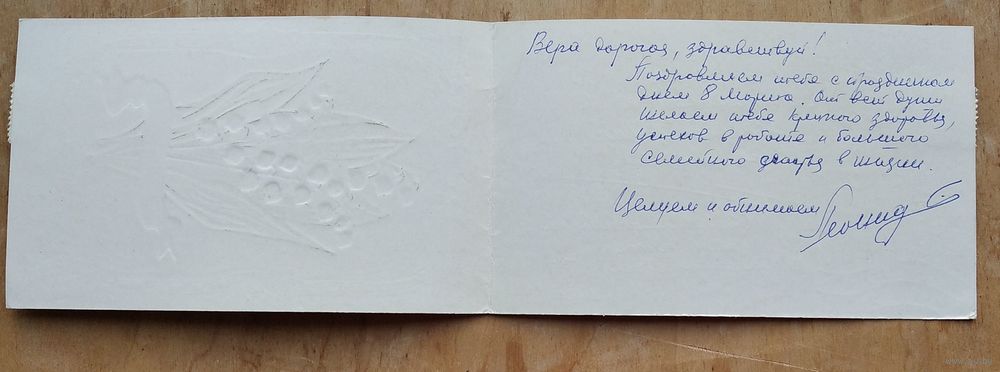 Вера дорогая, здравствуй!
Поздровляем тебя с праздником
днём 8 Марта. От всей души
желаем тебе крепкого здоровья,
успехов в работе и большого
семейного счастья в жизни.
Целуем и обнимаем
Леонид